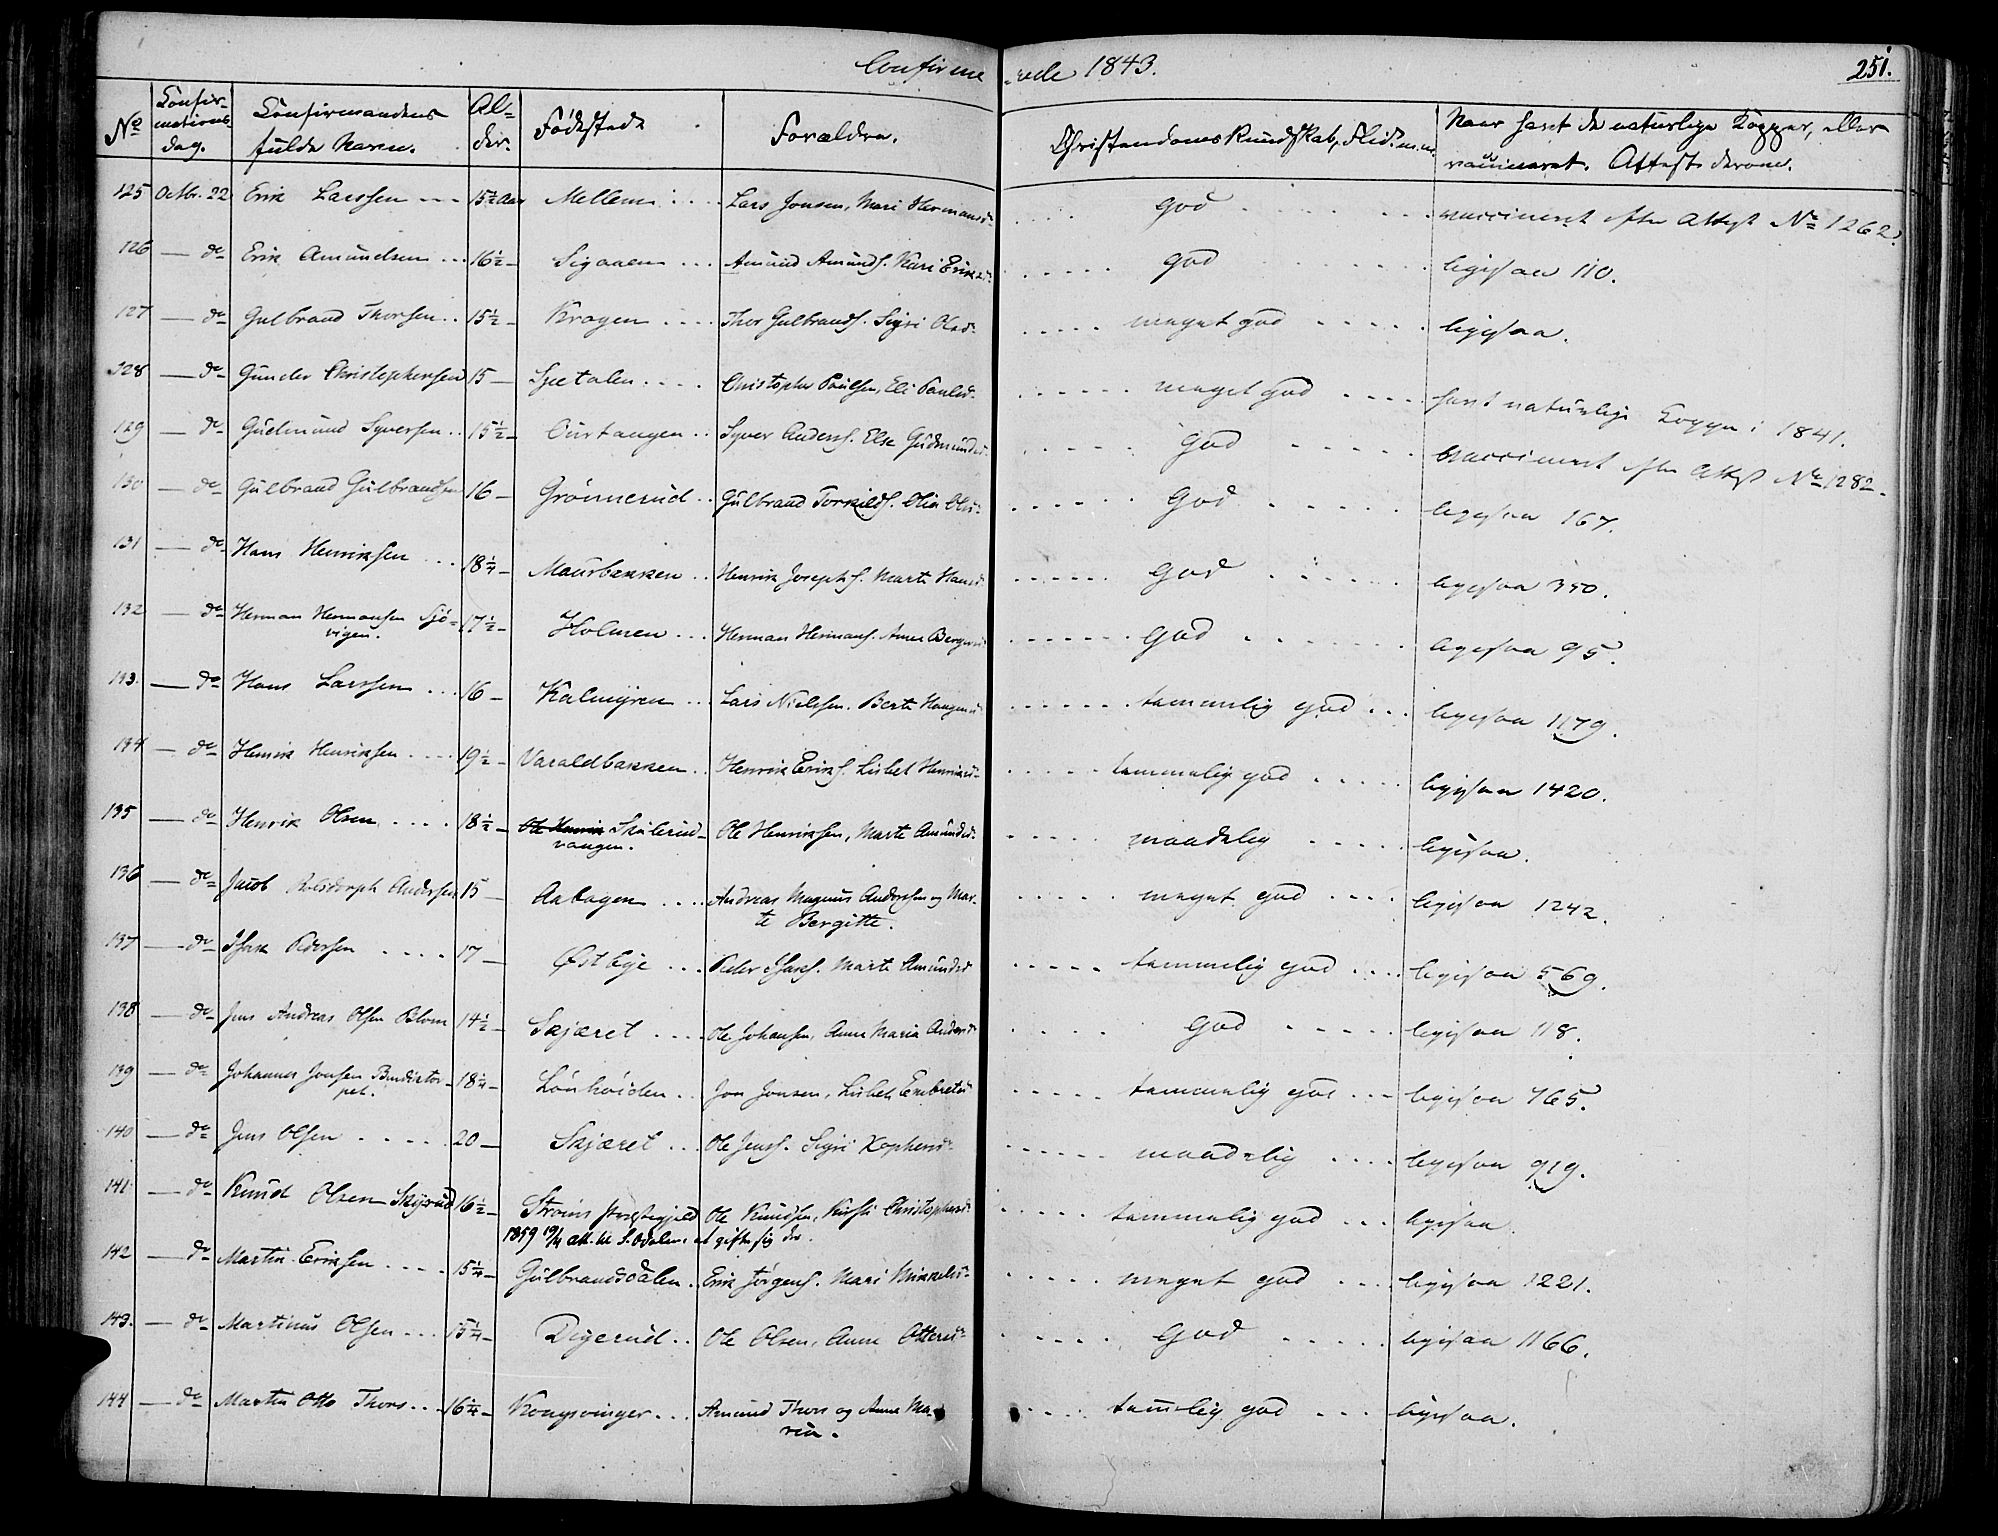 Confirme rede 1843. 251.
No Confirmations dag. Confirmandens fulde Navn. Alder. Fødested Forældre. Christendoms Kundskab, Flid m.m. Naar havt de naturlige Kopper, eller vaccineret. Attest derom.
125 Octbr. 22 Erik Larssen 15½ Aar Mellem Lars Jonsen, Mari Hermansd. god vaccineret efter Attest No 1262.
126 — do Erik Amundsen 16½ — Sigaaen Amund Amunds. Kari Eriksd. god ligesaa 110.
127 — do Gulbrand Thorsen 15½ — Kragen Thor Gulbrands. Sigri Olsd. meget god ligesaa.
128 — do Gunder Christophersen 15 — Spetalen Christopher Poulsen, Eli Poulsd. meget god havt naturlige Kopper i 1841.
129 — do Gudmund Syversen 15½ — Ourtangen Syver Anders. Else Gudmundsd. god vaccineret efter Attest No 1282.
130 — do Gulbrand Gulbrandsen 16 — Grønnerud Gulbrand Torkilds. Olia Olsd. God ligesaa 167.
131 — do Hans Henriksen 18¼ — Maurbakken Henrik Josephs. Marte Hansd. God ligesaa 350.
132 — do Herman Hermansen Sjø- 17½ — Holmen Herman Hermans. Anne Bergersd. God ligesaa 95.
vigen.
133. — do Hans Larssen 16 — Kalmyren Lars Nielssen. Berte Haagensd. temmelig god ligesaa 1179.
134 — do Henrik Henriksen 19½ — Varaldbakken Henrik Eriks. Lisbet Henriksd. temmelig god ligesaa 1420.
135 — do Henrik Olsen 18½ — Skulerud- Ole Henriksen, Marte Amundsd. maadelig ligesaa.
vangen.
136 — do Jacob Andersen 15 — Aabogen Andreas Magnus Andersen og Mar- meget god ligesaa 1242.
te Bergitte.
137 — do Isak Pedersen 17 — Østbye Peder Isaks. Marte Amundsd. temmelig god ligesaa 569.
138 — do Jens Andreas Olsen Blom 14½ — Skjæret Ole Johansen, Anne Maria Andersd. God ligesaa 118.
139 — do Johannes Jonsen Bendiktor- 18¼ — Lønhøiden Jon Jonsen, Lisbet Embretsd. temmelig god ligesaa 765.
pet.
140 — do Jens Olsen 20 — Skjæret Ole Jens. Sigri Kophensd. maadelig ligesaa 919.
141 — do Knud Olsen Skyrud 16½ — Strøms Præstegjeld Ole Knudsen, Kirsti Christophersd. temmelig god ligesaa.
1859 19/4 att. til S. Odalen at gifte sig der.
142 — do Martin Eriksen 15¼ — Gulbrandsdalen Erik Jørgens. Mari Mikkelsd. meget god ligesaa 1221.
143. — do Martinus Olsen 15¼ — Digerud Ole Olsen, Anne Ottersd. God ligesaa 1166.
144 — do Martin Otto Thors 16¼ — Kongsvinger Amund Thors og Anne Ma- temmelig god ligesaa.
ria.